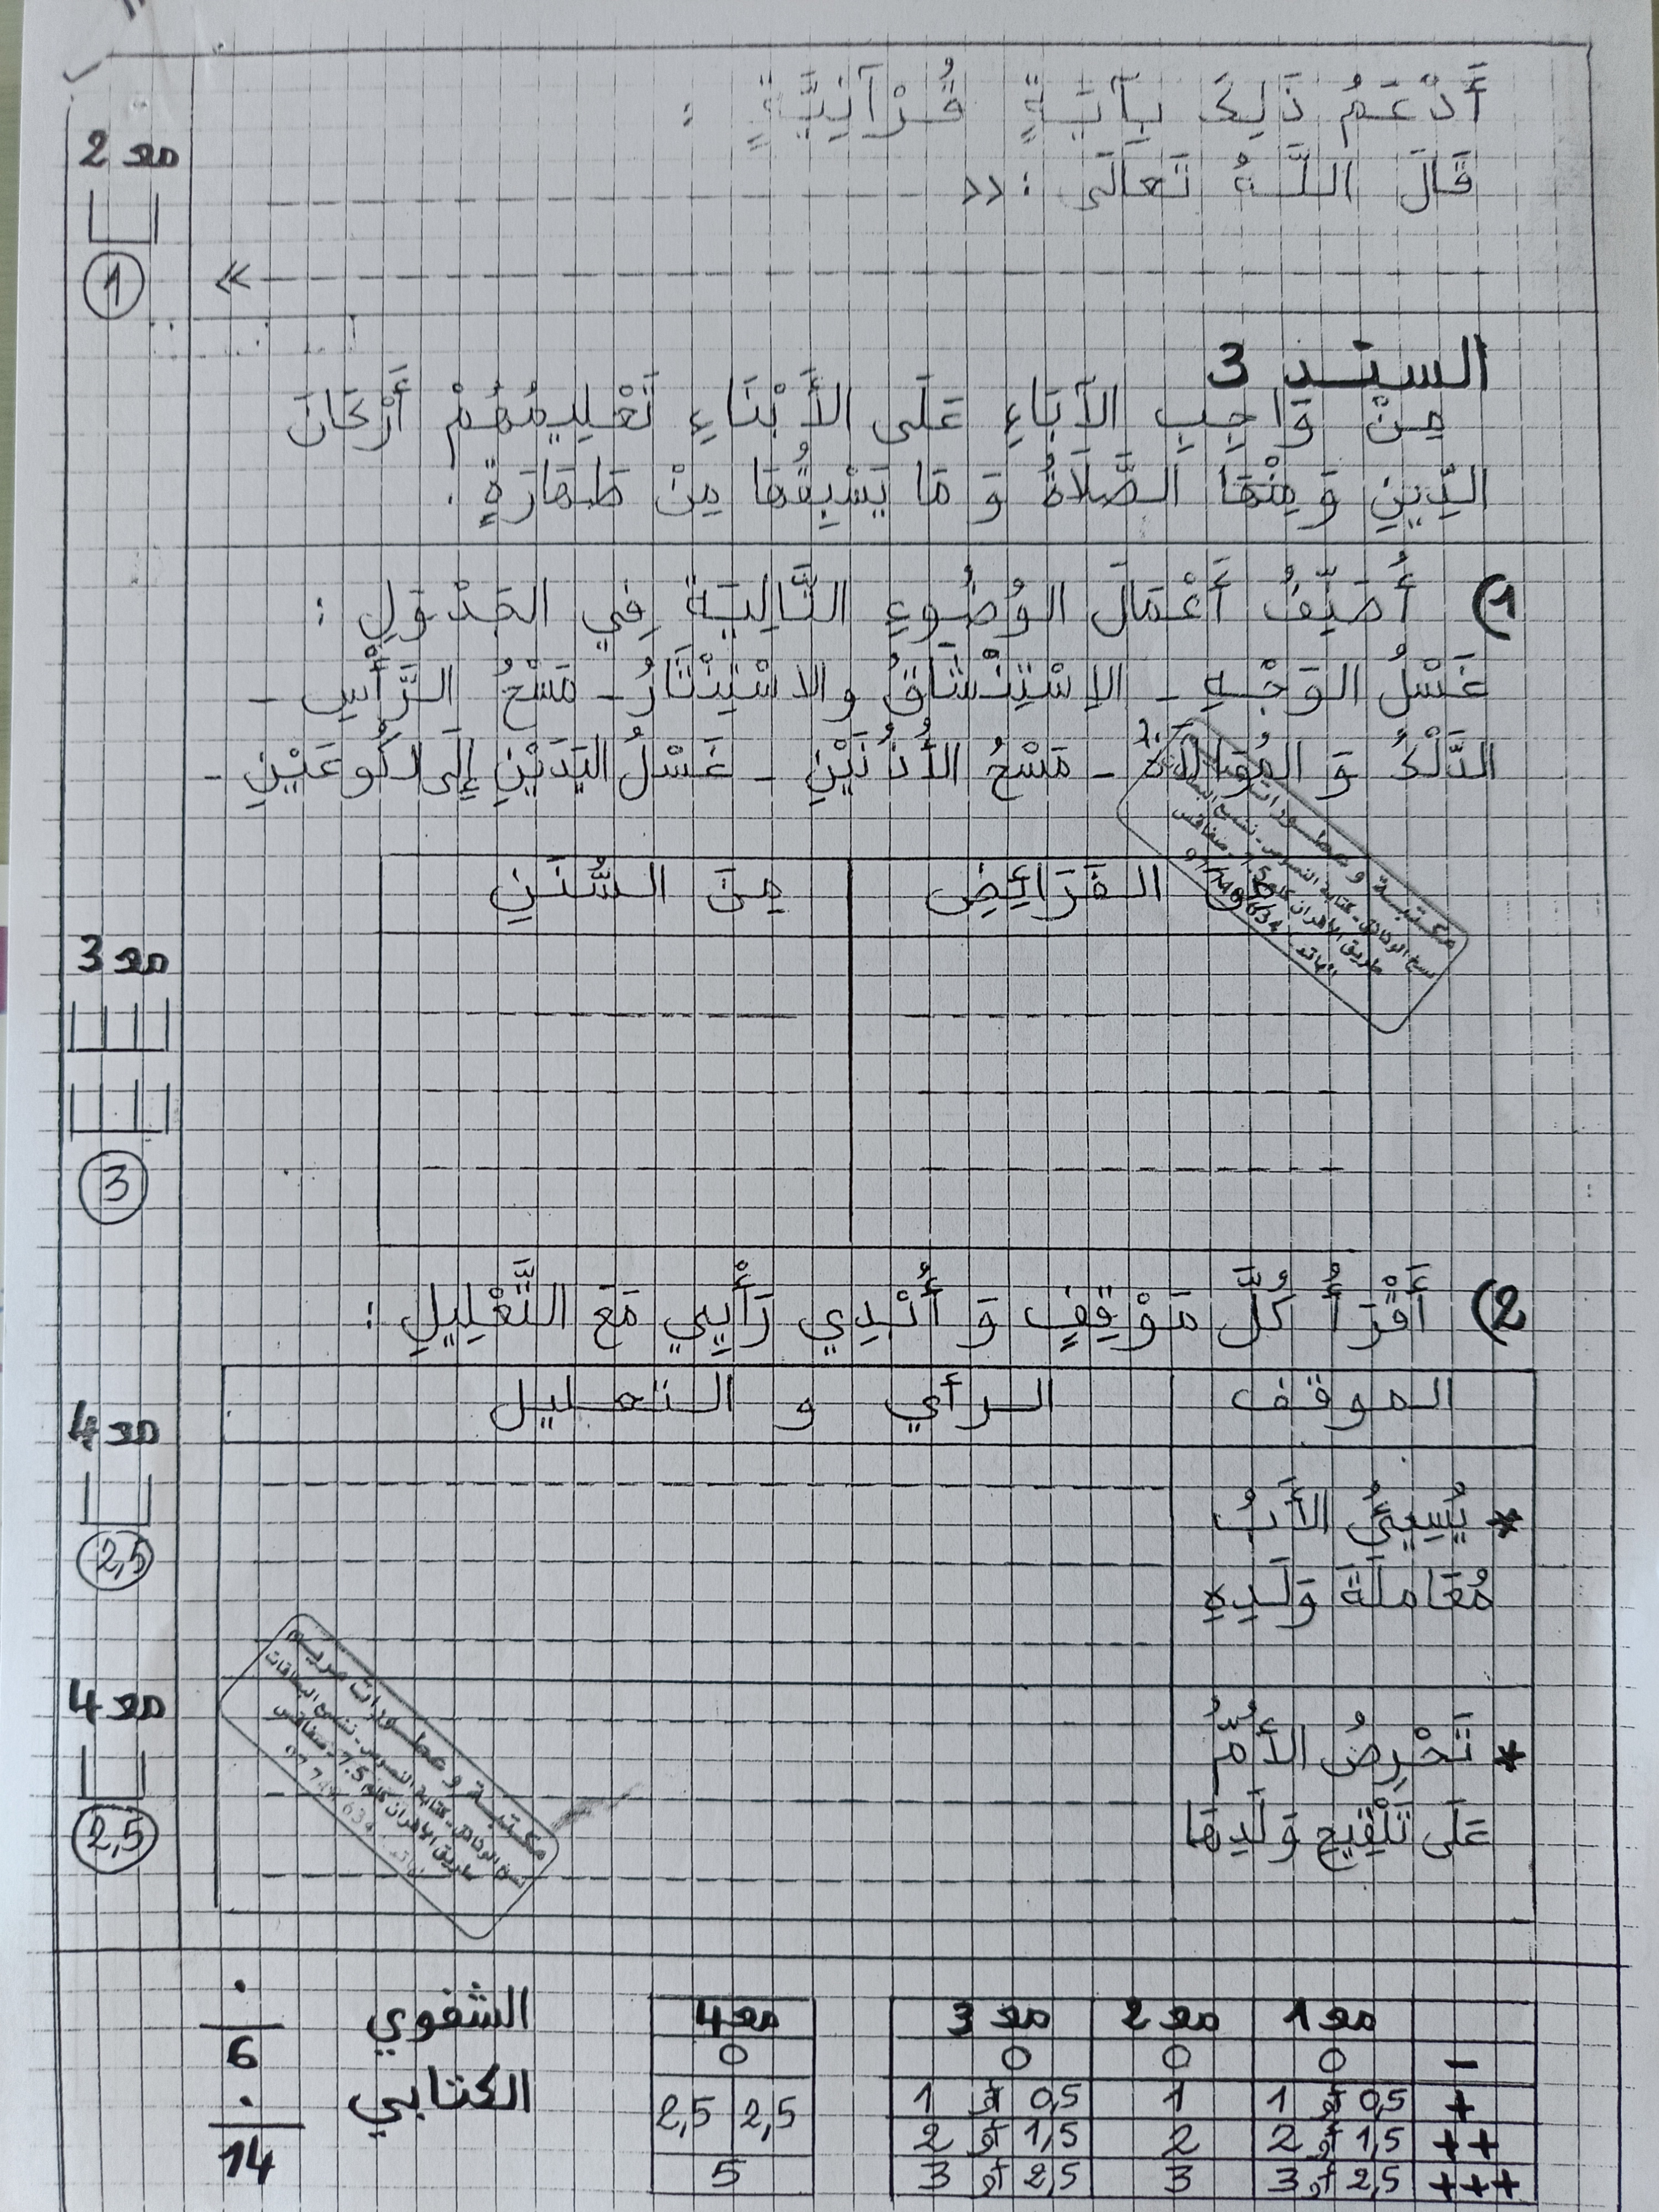 أَدْعَمُ ذَلِكَ بِآيَةٍ قُرْآنِيَّةٍ :
مع 2
قَالَ اللَّهُ تَعَالَى : «
»
1
السند 3
مِنْ وَاجِبِ الآبَاءِ عَلَى الأَبْنَاءِ تَعْلِيمُهُمْ أَرْكَانَ
الدِّينِ وَمِنْهَا الصَّلَاةُ وَ مَا يَسْبِقُهَا مِنْ طَهَارَةٍ .
1) أُصَنِّفُ أَعْمَالَ الوُضُوءِ التَّالِيَةَ فِي الجَدْوَلِ :
غَسْلُ الوَجْهِ - الاِسْتِنْشَاقُ والاسْتِنْثَارُ - مَسْحُ الرَّأْسِ -
الدَّلْكُ وَ المُوَالَاةُ - مَسْحُ الأُذُنَيْنِ - غَسْلُ اليَدَيْنِ إِلَى الكُوعَيْنِ -
مِنَ الفَرَائِضِ مِنَ السُّنَنِ
مع 3
3
2) أَقْرَأُ كُلَّ مَوْقِفٍ وَ أُبْدِي رَأْيِي مَعَ التَّعْلِيلِ :
الموقف الرأي و التعليل
مع 4
* يُسِيئُ الأَبُ
2,5
مُعَامَلَةَ وَلَدِهِ
مع 4
* تَحْرِصُ الأُمُّ
عَلَى تَلْقِيحِ وَلَدِهَا
2,5
مكتبة و عطورات مريم
نسخ الوثائق - كتابة النصوص - نسخ البطاقات
طريق الأفران كلم 7.5 صفاقس
مع 1 مع 2 مع 3 مع 4
- 0 0 0 0
+ 0,5 أو 1 1 0,5 أو 1 2,5 2,5
++ 1,5 أو 2 2 1,5 أو 2
+++ 2,5 أو 3 3 2,5 أو 3 5
الشفوي
6
الكتابي
14